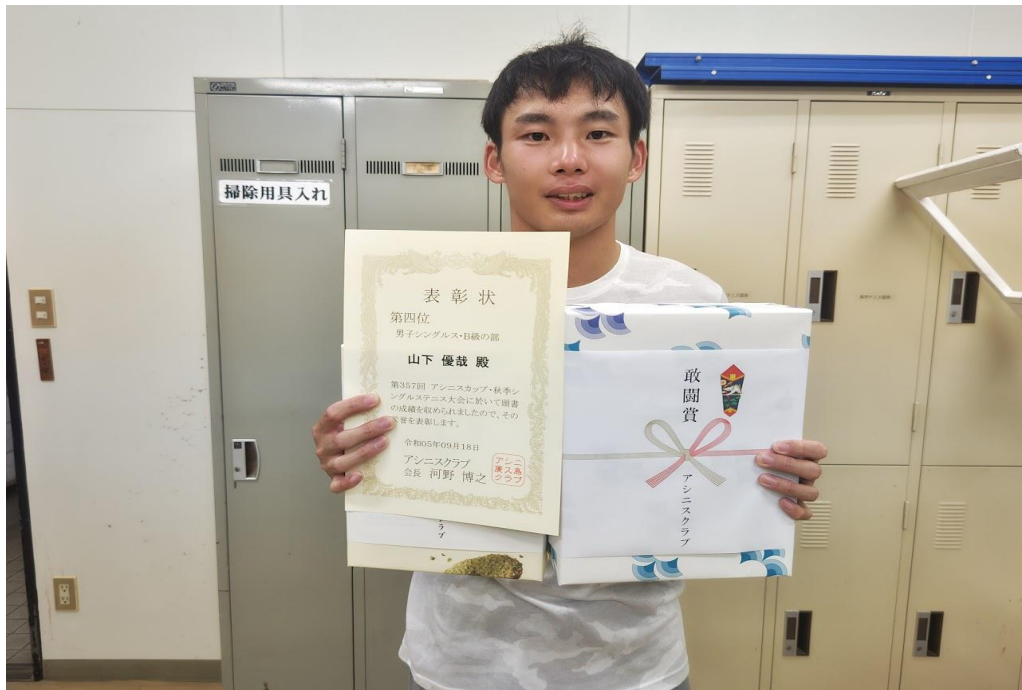 掃除用具入れ
表彰状
第四位
男子シングルス・B級の部
山下 優哉 殿
第357回 アシニスカップ・秋季シ
ングルステニス大会に於いて頭書
の成績を収められましたので、その
栄誉を表彰します。
令和05年09月18日
アシニスクラブ
会長 河野 博之
アシニ
クラブ
敢闘賞
アシニスクラブ
ラブ